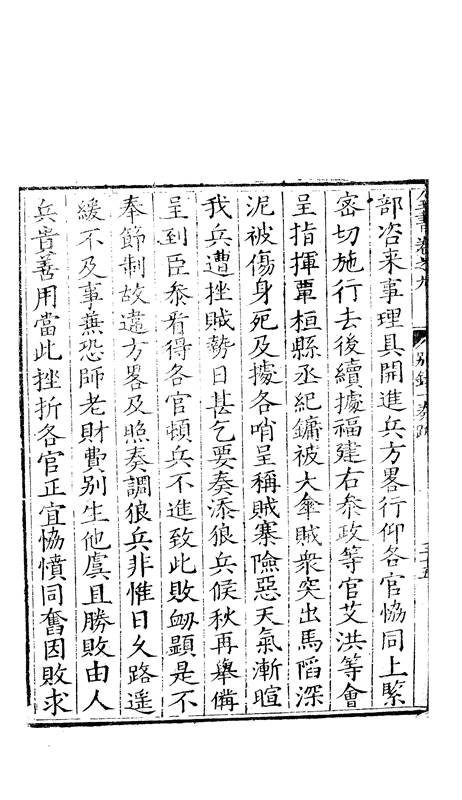 全書卷之九 別錄一 奏疏 三十五
部咨來事理具開進兵方畧行仰各官恊同上緊
密切施行去後續據福建右叅政等官艾洪等會
呈指揮覃桓縣丞紀鏞被大傘賊衆突出馬陷深
泥被傷身死及據各哨呈稱賊寨險惡天氣漸暄
我兵遭挫賊勢日甚乞要奏添狼兵候秋再舉備
呈到臣叅看得各官頓兵不進致此敗衂顯是不
奉節制故違方畧及照奏調狼兵非惟日久路遥
緩不及事兼恐師老財費别生他虞且勝敗由人
兵貴善用當此挫折各官正宜恊憤同奮因敗求